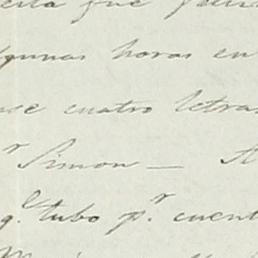 fue
algunas horas en
cuatro letras
r Simon —
q.e tubo p.r cuent